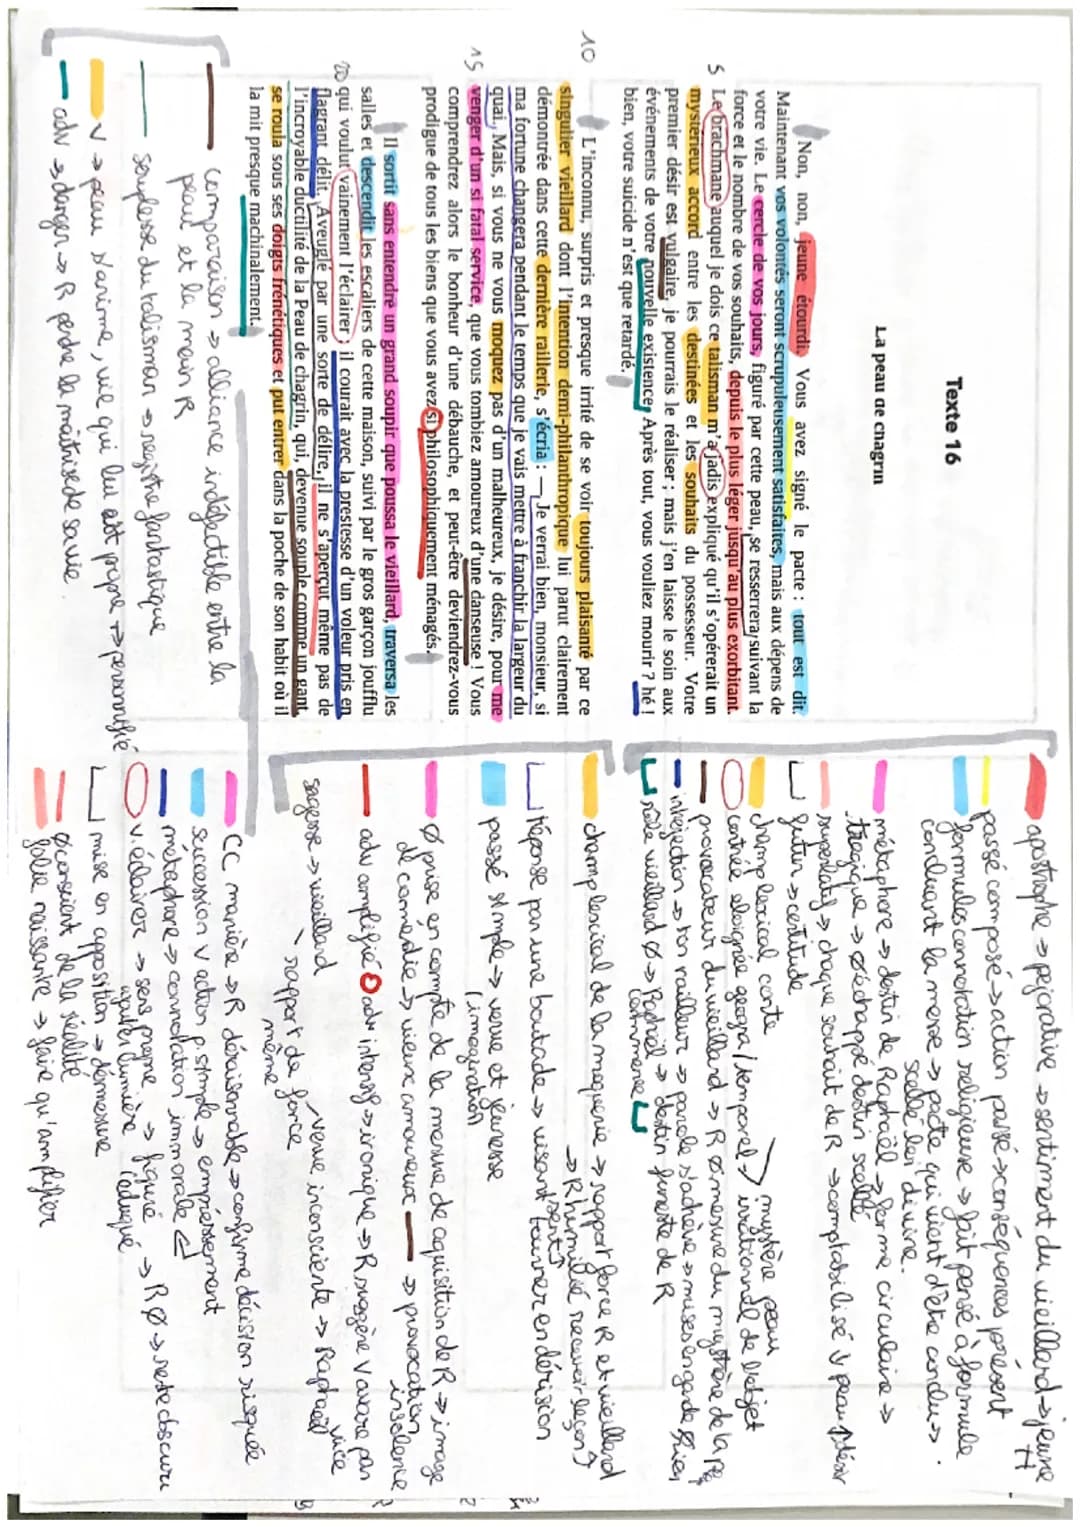 Texte 16
La peau de chagrin
Non, non, jeune étourdi. Vous avez signé le pacte : tout est dit.
Maintenant vos volontés seront scrupuleusement satisfaites, mais aux dépens de
votre vie. Le cercle de vos jours, figuré par cette peau, se resserrera suivant la
force et le nombre de vos souhaits, depuis le plus léger jusqu'au plus exorbitant.
5 Le brachmane auquel je dois ce talisman m'a jadis expliqué qu'il s'opérerait un
mystérieux accord entre les destinées et les souhaits du possesseur. Votre
premier désir est vulgaire, je pourrais le réaliser ; mais j'en laisse le soin aux
événements de votre nouvelle existence. Après tout, vous vouliez mourir ? hé !
bien, votre suicide n'est que retardé.
10 L'inconnu, surpris et presque irrité de se voir toujours plaisanté par ce
singulier vieillard dont l'intention demi-philanthropique lui parut clairement
démontrée dans cette dernière raillerie, s'écria : — Je verrai bien, monsieur, si
ma fortune changera pendant le temps que je vais mettre à franchir la largeur du
quai. Mais, si vous ne vous moquez pas d'un malheureux, je désire, pour me
15 venger d'un si fatal service, que vous tombiez amoureux d'une danseuse ! Vous
comprendrez alors le bonheur d'une débauche, et peut-être deviendrez-vous
prodigue de tous les biens que vous avez si philosophiquement ménagés.
Il sortit sans entendre un grand soupir que poussa le vieillard, traversa les
salles et descendit les escaliers de cette maison, suivi par le gros garçon joufflu
20 qui voulut vainement l'éclairer ; il courait avec la prestesse d'un voleur pris en
flagrant délit. Aveuglé par une sorte de délire, il ne s'aperçut même pas de
l'incroyable ductilité de la Peau de chagrin, qui, devenue souple comme un gant,
se roula sous ses doigts frénétiques et put entrer dans la poche de son habit où il
la mit presque machinalement.
comparaison → alliance indéfectible entre la
peau et la main R
souplesse du talisman → registre fantastique
v → peau s'anime, vie qui lui est propre → personnifié
adv → danger → R perdre la maîtrise de sa vie
apostrophe → péjorative → sentiment du vieillard → jeune H
passé composé → action passé → conséquences présent
formules connotation religieuse → fait pensé à formule
concluant la messe → pacte qui vient d'être conclu →
scellé lien divine.
métaphore → destin de Raphaël → forme circulaire →
tragique → Ø échappé destin scellé
superlatif → chaque souhait de R → comptabilisé v peau désir
futur → certitude
champ lexical conte
contrée éloignée géogra/temporel → irrationnel de l'objet
mystère peau
provocateur du vieillard → R Ø mesure du mystère de la
interjection → ton railleur → parole s'achève → mises en garde
vieillard Ø → Raphaël → destin funeste de R
commence
champ lexical de la moquerie → rapport force R et vieillard
→ R humilié recevoir leçon
réponse par une boutade → visant tourner en dérision
passé simple → verve et jeunesse
(imagination)
Ø prise en compte de la mesure de aquisition de R → image
de comédie → vieux amoureux → provocation,
insolence
adv amplifié adv intensif → ironique → R suggère v avare par
vice
sagesse → vieillard verve inconsciente → Raphaël
rapport de force
même
CC manière → R déraisonnable → confirme décision risquée
succession v action p. simple → empressement
métaphore → connotation immorale
v. éclairer → sens propre → figuré → R Ø → reste obscur
lumière éduqué
mise en apposition → démesure
Ø conscient de la réalité
folie naissante → faire qu'amplifier